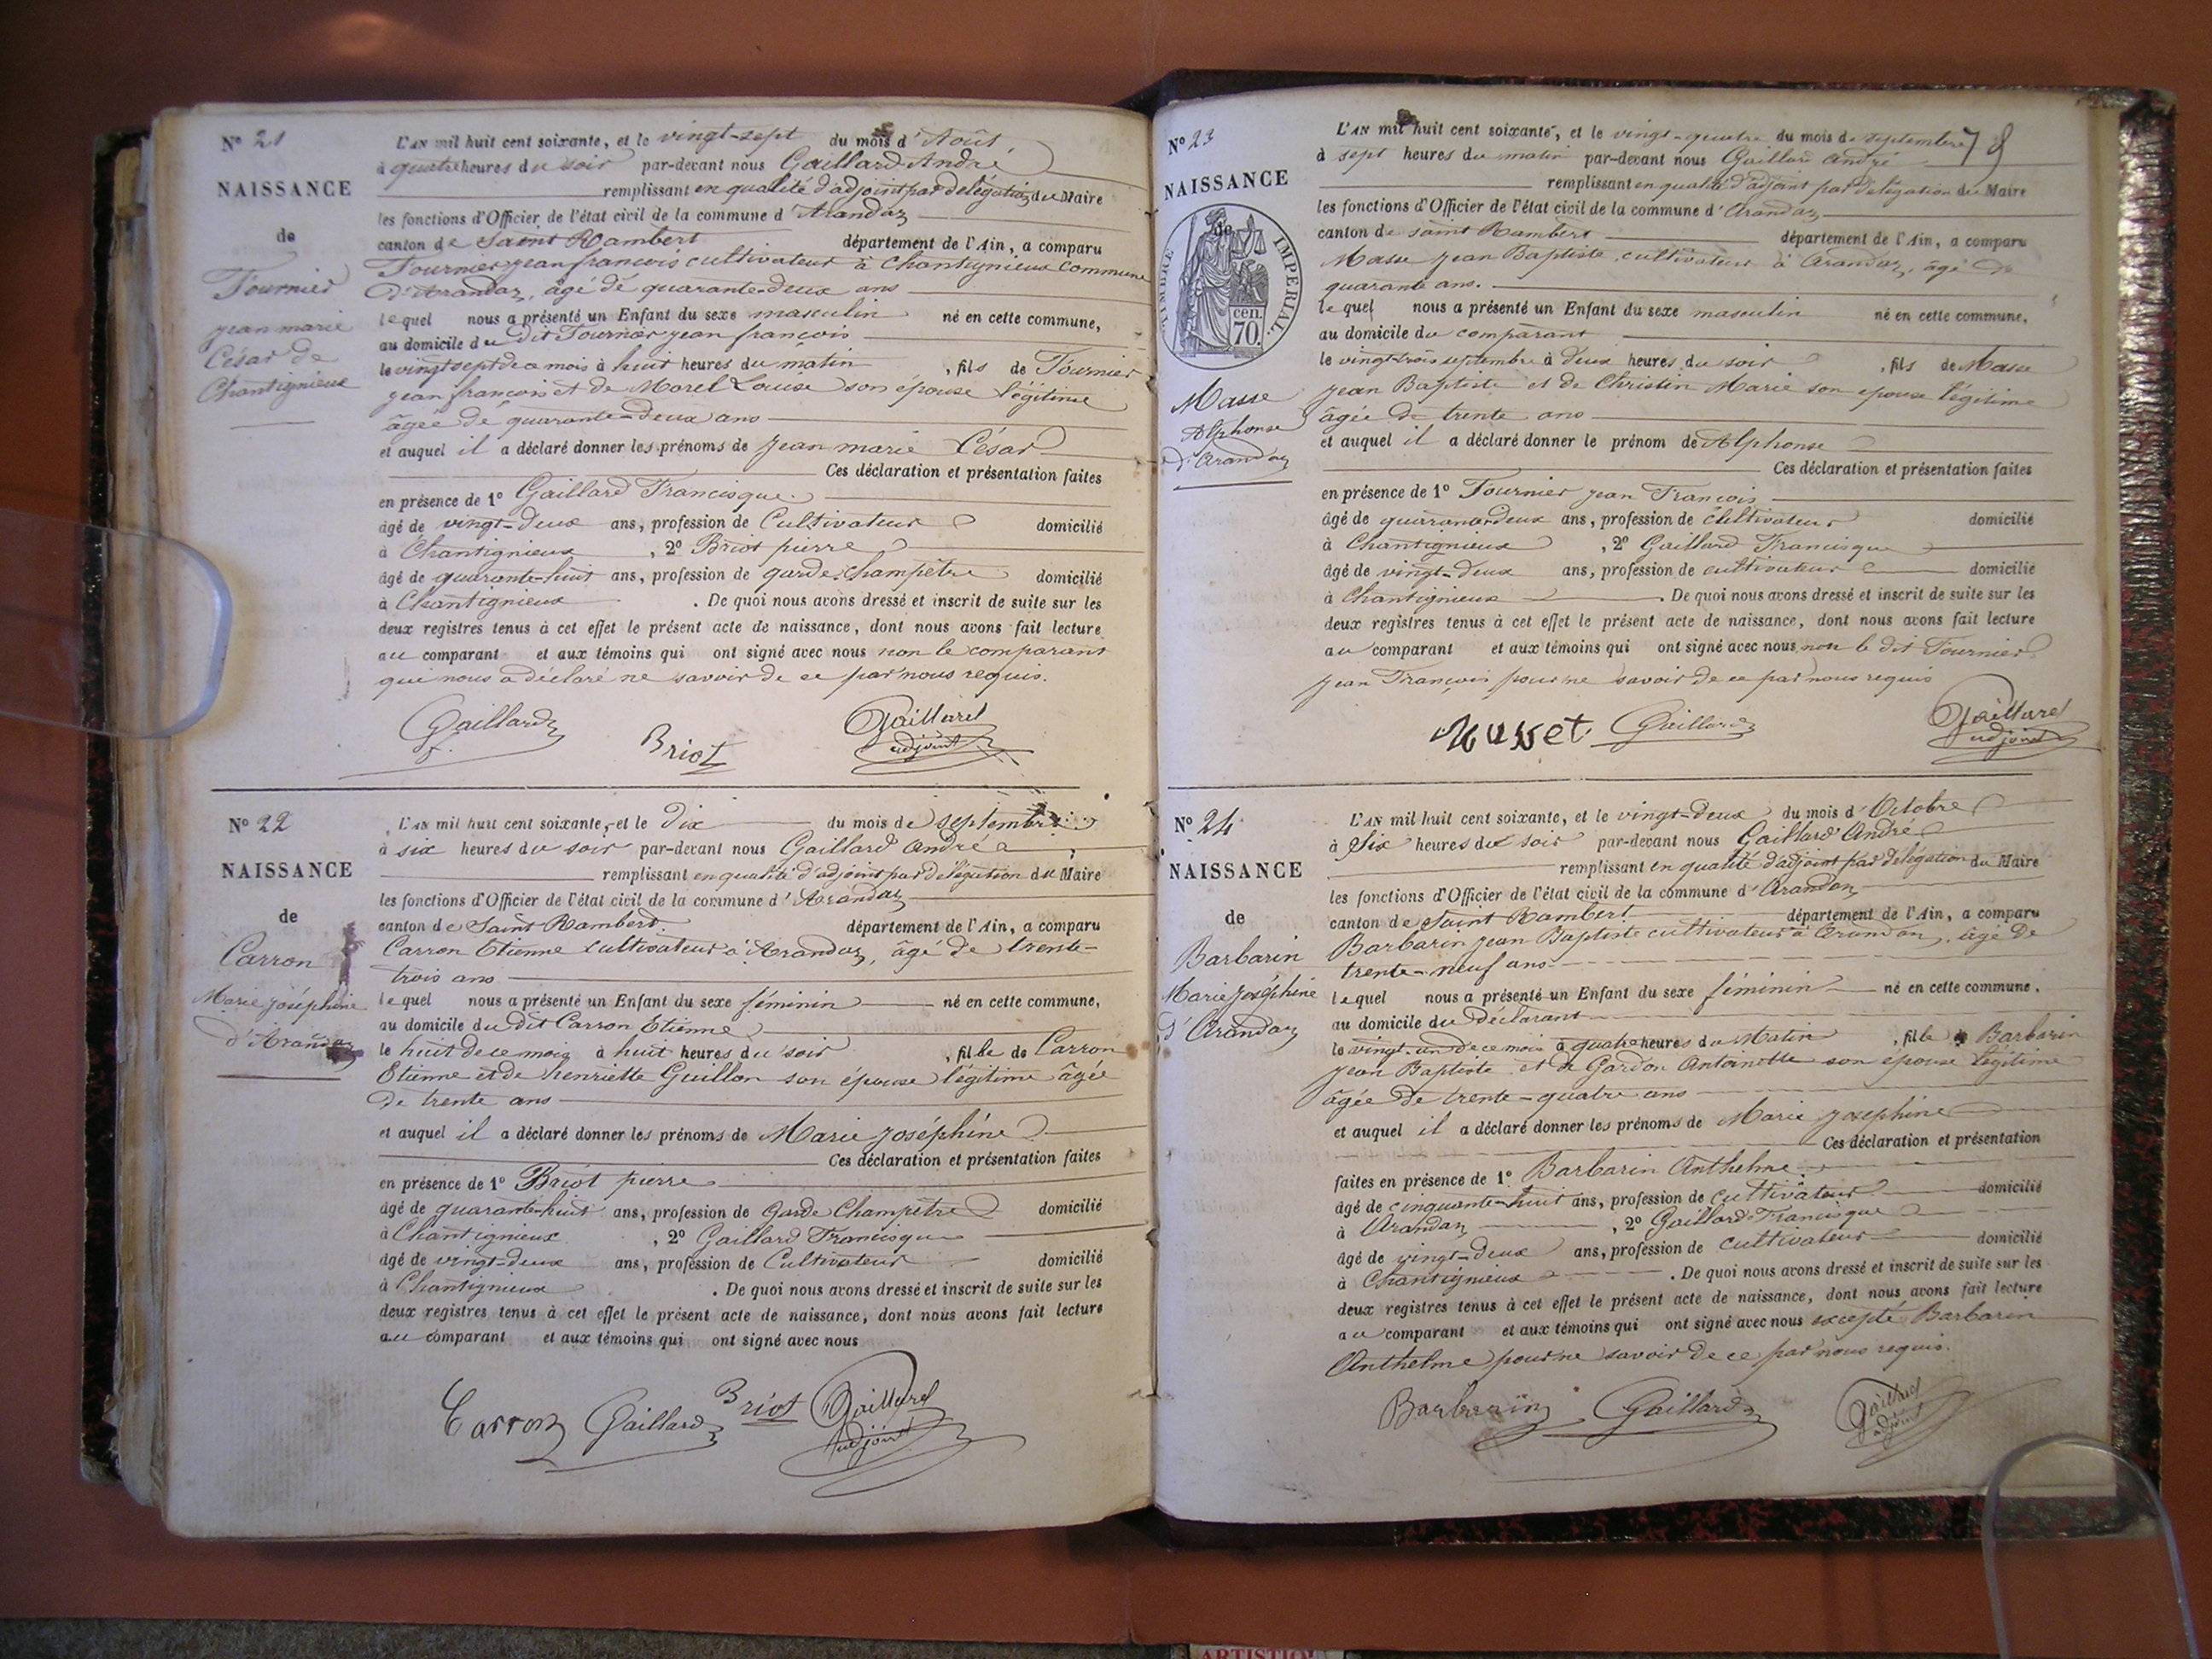 N° 21
NAISSANCE
de
Fournier
jean marie
César de
Chantignieux
L'AN mil huit cent soixante, et le vingt-sept du mois d'Août
à quatre heures du soir par-devant nous Gaillard André
remplissant en qualité d'adjoint par délégation du Maire
les fonctions d'Officier de l'état civil de la commune d'Arandaz
canton de Saint Rambert département de l'Ain, a comparu
Fournier jean françois cultivateur à Chantignieux Commune
d'Arandaz, âgé de quarante-deux ans
lequel nous a présenté un Enfant du sexe masculin né en cette commune,
au domicile du dit Fournier jean françois
le vingt sept de ce mois à huit heures du matin, fils de Fournier
jean françois et de Morel Louise son épouse légitime
âgée de quarante-deux ans
et auquel il a déclaré donner les prénoms de jean marie César
Ces déclaration et présentation faites
en présence de 1° Gaillard Francisque
âgé de vingt-deux ans, profession de Cultivateur domicilié
à Chantignieux, 2° Briot pierre
âgé de quarante-huit ans, profession de garde-champêtre domicilié
à Chantignieux. De quoi nous avons dressé et inscrit de suite sur les
deux registres tenus à cet effet le présent acte de naissance, dont nous avons fait lecture
au comparant et aux témoins qui ont signé avec nous non le comparant
qui nous a déclaré ne savoir de ce par nous requis.
Gaillard Briot Gaillard
f. adjoint
N° 22
NAISSANCE
de
Carron
Marie joséphine
d'Arandaz
L'AN mil huit cent soixante, et le dix du mois de septembre
à six heures du soir par-devant nous Gaillard André
remplissant en qualité d'adjoint par délégation du Maire
les fonctions d'Officier de l'état civil de la commune d'Arandaz
canton de Saint Rambert département de l'Ain, a comparu
Carron Etienne cultivateur à Arandaz, âgé de trente-
trois ans
lequel nous a présenté un Enfant du sexe féminin né en cette commune,
au domicile du dit Carron Etienne
le huit de ce mois à huit heures du soir, fille de Carron
Etienne et de henriette Guillon son épouse légitime âgée
de trente ans
et auquel il a déclaré donner les prénoms de Marie joséphine
Ces déclaration et présentation faites
en présence de 1° Briot pierre
âgé de quarante-huit ans, profession de Garde Champêtre domicilié
à Chantignieux, 2° Gaillard Francisque
âgé de vingt-deux ans, profession de Cultivateur domicilié
à Chantignieux. De quoi nous avons dressé et inscrit de suite sur les
deux registres tenus à cet effet le présent acte de naissance, dont nous avons fait lecture
au comparant et aux témoins qui ont signé avec nous
Carron Gaillard Briot Gaillard
adjoint
N° 23
NAISSANCE
de
TIMBRE IMPERIAL.
cen.
70.
Masse
Alphonse
d'Arandaz
78
L'AN mil huit cent soixante, et le vingt-quatre du mois de septembre
à sept heures du matin par-devant nous Gaillard André
remplissant en qualité d'adjoint par délégation du Maire
les fonctions d'Officier de l'état civil de la commune d'Arandaz
canton de saint Rambert département de l'Ain, a comparu
Masse jean Baptiste, cultivateur à Arandaz, âgé de
quarante ans.
lequel nous a présenté un Enfant du sexe masculin né en cette commune,
au domicile du comparant
le vingt-trois septembre à deux heures du soir, fils de Masse
jean Baptiste et de Christin Marie son épouse légitime
âgée de trente ans
et auquel il a déclaré donner le prénom de Alphonse
Ces déclaration et présentation faites
en présence de 1° Fournier jean François
âgé de quarante-deux ans, profession de Cultivateur domicilié
à Chantignieux, 2° Gaillard Francisque
âgé de vingt-deux ans, profession de cultivateur domicilié
à Chantignieux. De quoi nous avons dressé et inscrit de suite sur les
deux registres tenus à cet effet le présent acte de naissance, dont nous avons fait lecture
au comparant et aux témoins qui ont signé avec nous non le dit Fournier
jean François pour ne savoir de ce par nous requis
Gaillard Gaillard
adjoint
N° 24
NAISSANCE
de
Barbarin
Marie Joséphine
d'Arandaz
L'AN mil huit cent soixante, et le vingt-deux du mois d'Octobre
à Six heures du soir par-devant nous Gaillard André
remplissant en qualité d'adjoint par délégation du Maire
les fonctions d'Officier de l'état civil de la commune d'Arandaz
canton de Saint Rambert département de l'Ain, a comparu
Barbarin jean Baptiste cultivateur à Arandaz, âgé de
trente-neuf ans
lequel nous a présenté un Enfant du sexe féminin né en cette commune,
au domicile du Déclarant
le vingt-un de ce mois à quatre heures du Matin, fille de Barbarin
jean Baptiste et de Gardon Antoinette son épouse légitime
âgée de trente-quatre ans
et auquel il a déclaré donner les prénoms de Marie josephine
Ces déclaration et présentation
faites en présence de 1° Barbarin Anthelme
âgé de cinquante-huit ans, profession de Cultivateur domicilié
à Arandaz, 2° Gaillard Francisque
âgé de vingt-deux ans, profession de cultivateur domicilié
à Chantignieux. De quoi nous avons dressé et inscrit de suite sur les
deux registres tenus à cet effet le présent acte de naissance, dont nous avons fait lecture
au comparant et aux témoins qui ont signé avec nous excepté Barbarin
Anthelme pour ne savoir de ce par nous requis.
Barbarin Gaillard Gaillard
adjoint